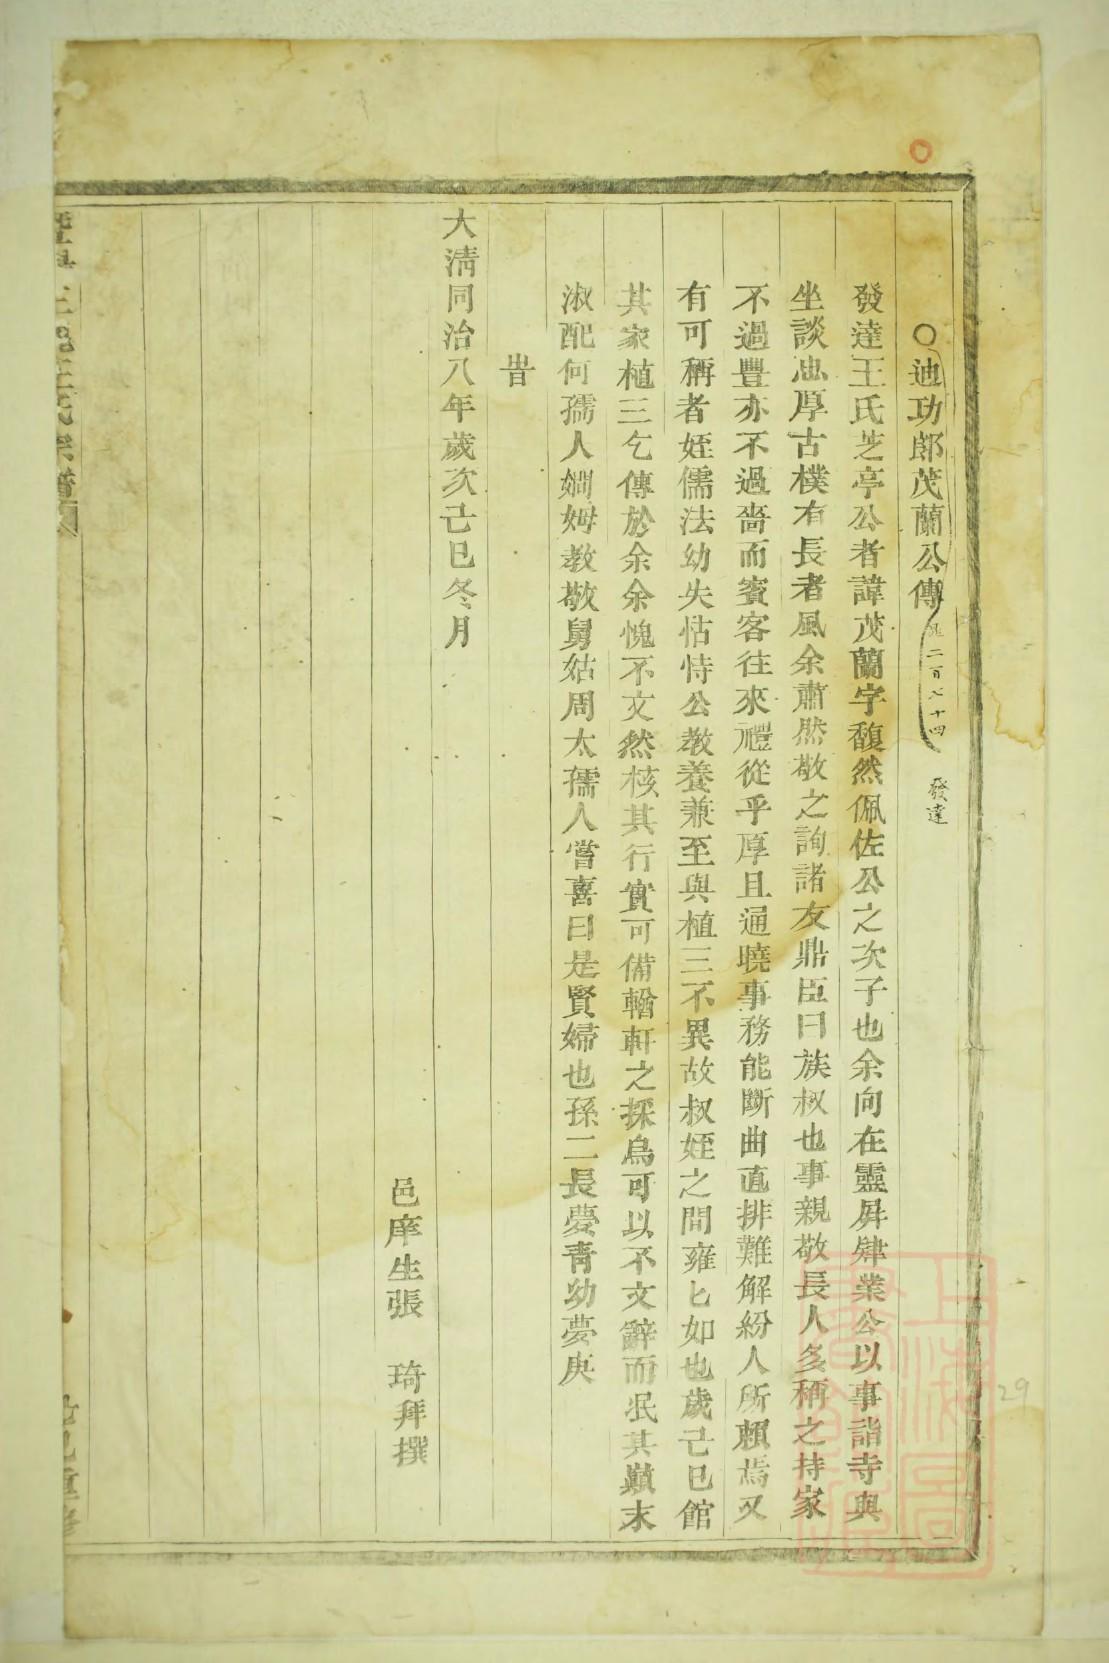 ○迪功郎茂蘭公傳 二百七十四 發達
發達王氏芝亭公者諱茂蘭字馥然佩佐公之次子也余向在靈屛肄業公以事詣寺與
坐談忠厚古樸有長者風余肅然敬之詢諸友鼎臣曰族叔也事親敬長人多稱之持家
不過豐亦不過嗇而賓客往來禮從乎厚且通曉事務能斷曲直排難解紛人所賴焉又
有可稱者姪儒法幼失怙恃公教養兼至與植三不異故叔姪之間雍匕如也歲己巳館
其家植三乞傳於余余愧不文然核其行實可備輶軒之採烏可以不文辭而泯其巔末
淑配何孺人嫺姆教敬舅姑周太孺人嘗喜曰是賢婦也孫二長夢靑幼夢庚
旹
大淸同治八年歲次己巳冬月
邑庠生張 琦拜撰
王氏宗譜
重修
上海圖書館藏
29